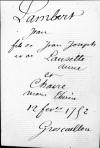 Lambert
Jean
fils de Jean Joseph
et de Lausette
Anne
et
Chavre
Marie Thérèse
12 fevr 1752
Groscaillou